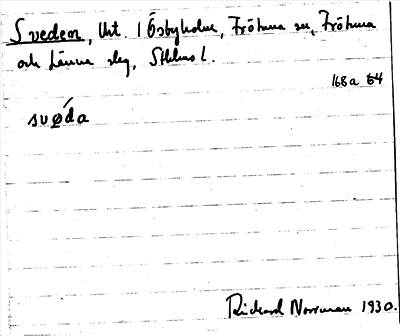 Sveden, Utt. i Ösbyholm, Frötuna sn, Frötuna
och Länna slg, Sthlms l.
168a 64
svǿda
Rickard Norrman 1930.